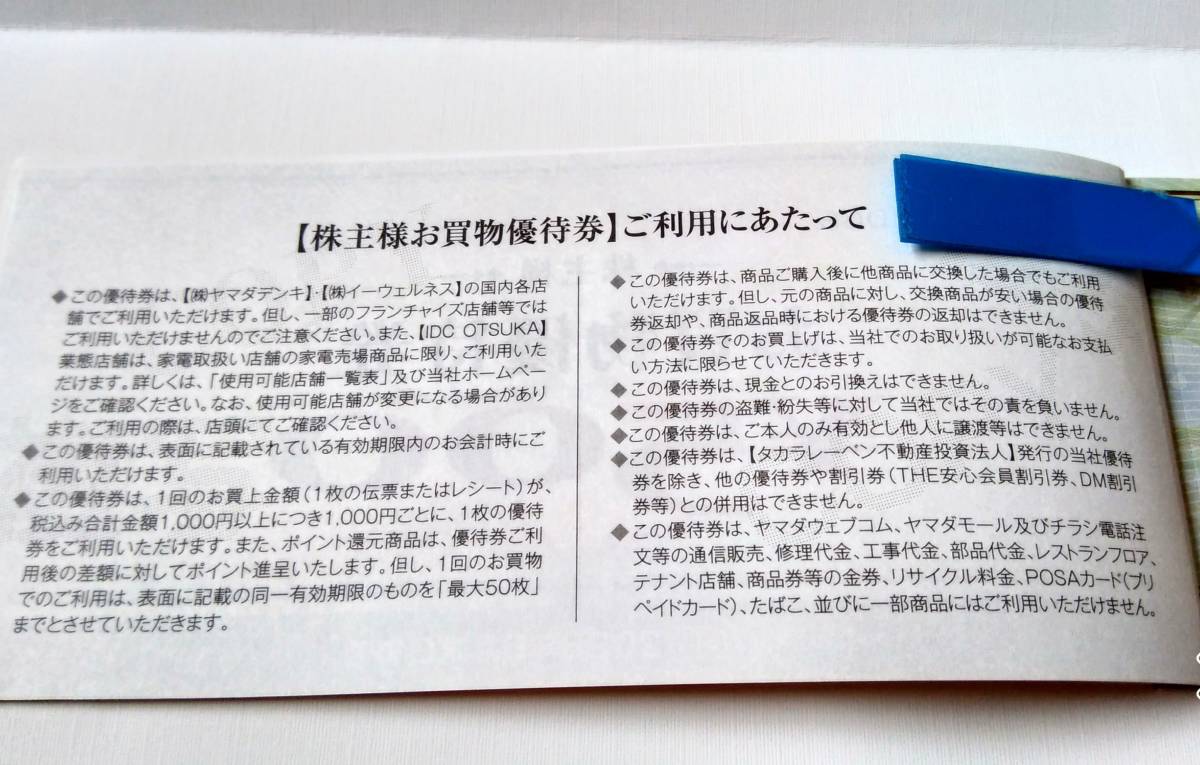 【株主様お買物優待券】ご利用にあたって
◆この優待券は、【㈱ヤマダデンキ】・【㈱イーウェルネス】の国内各店
舗でご利用いただけます。但し、一部のフランチャイズ店舗等では
ご利用いただけませんのでご注意ください。また、【IDC OTSUKA】
業態店舗は、家電取扱い店舗の家電売場商品に限り、ご利用いた
だけます。詳しくは、「使用可能店舗一覧表」及び当社ホームペー
ジをご確認ください。なお、使用可能店舗が変更になる場合があり
ます。ご利用の際は、店頭にてご確認ください。
◆この優待券は、表面に記載されている有効期限内のお会計時にご
利用いただけます。
◆この優待券は、1回のお買上金額（1枚の伝票またはレシート）が、
税込み合計金額1,000円以上につき1,000円ごとに、1枚の優待
券をご利用いただけます。また、ポイント還元商品は、優待券ご利
用後の差額に対してポイント進呈いたします。但し、1回のお買物
でのご利用は、表面に記載の同一有効期限のものを「最大50枚」
までとさせていただきます。
◆この優待券は、商品ご購入後に他商品に交換した場合でもご利用
いただけます。但し、元の商品に対し、交換商品が安い場合の優待
券返却や、商品返品時における優待券の返却はできません。
◆この優待券でのお買上げは、当社でのお取り扱いが可能なお支払
い方法に限らせていただきます。
◆この優待券は、現金とのお引換えはできません。
◆この優待券の盗難・紛失等に対して当社ではその責を負いません。
◆この優待券は、ご本人のみ有効とし他人に譲渡等はできません。
◆この優待券は、【タカラレーベン不動産投資法人】発行の当社優待
券を除き、他の優待券や割引券（THE安心会員割引券、DM割引
券等）との併用はできません。
◆この優待券は、ヤマダウェブコム、ヤマダモール及びチラシ電話注
文等の通信販売、修理代金、工事代金、部品代金、レストランフロア、
テナント店舗、商品券等の金券、リサイクル料金、POSAカード（プリ
ペイドカード）、たばこ、並びに一部商品にはご利用いただけません。